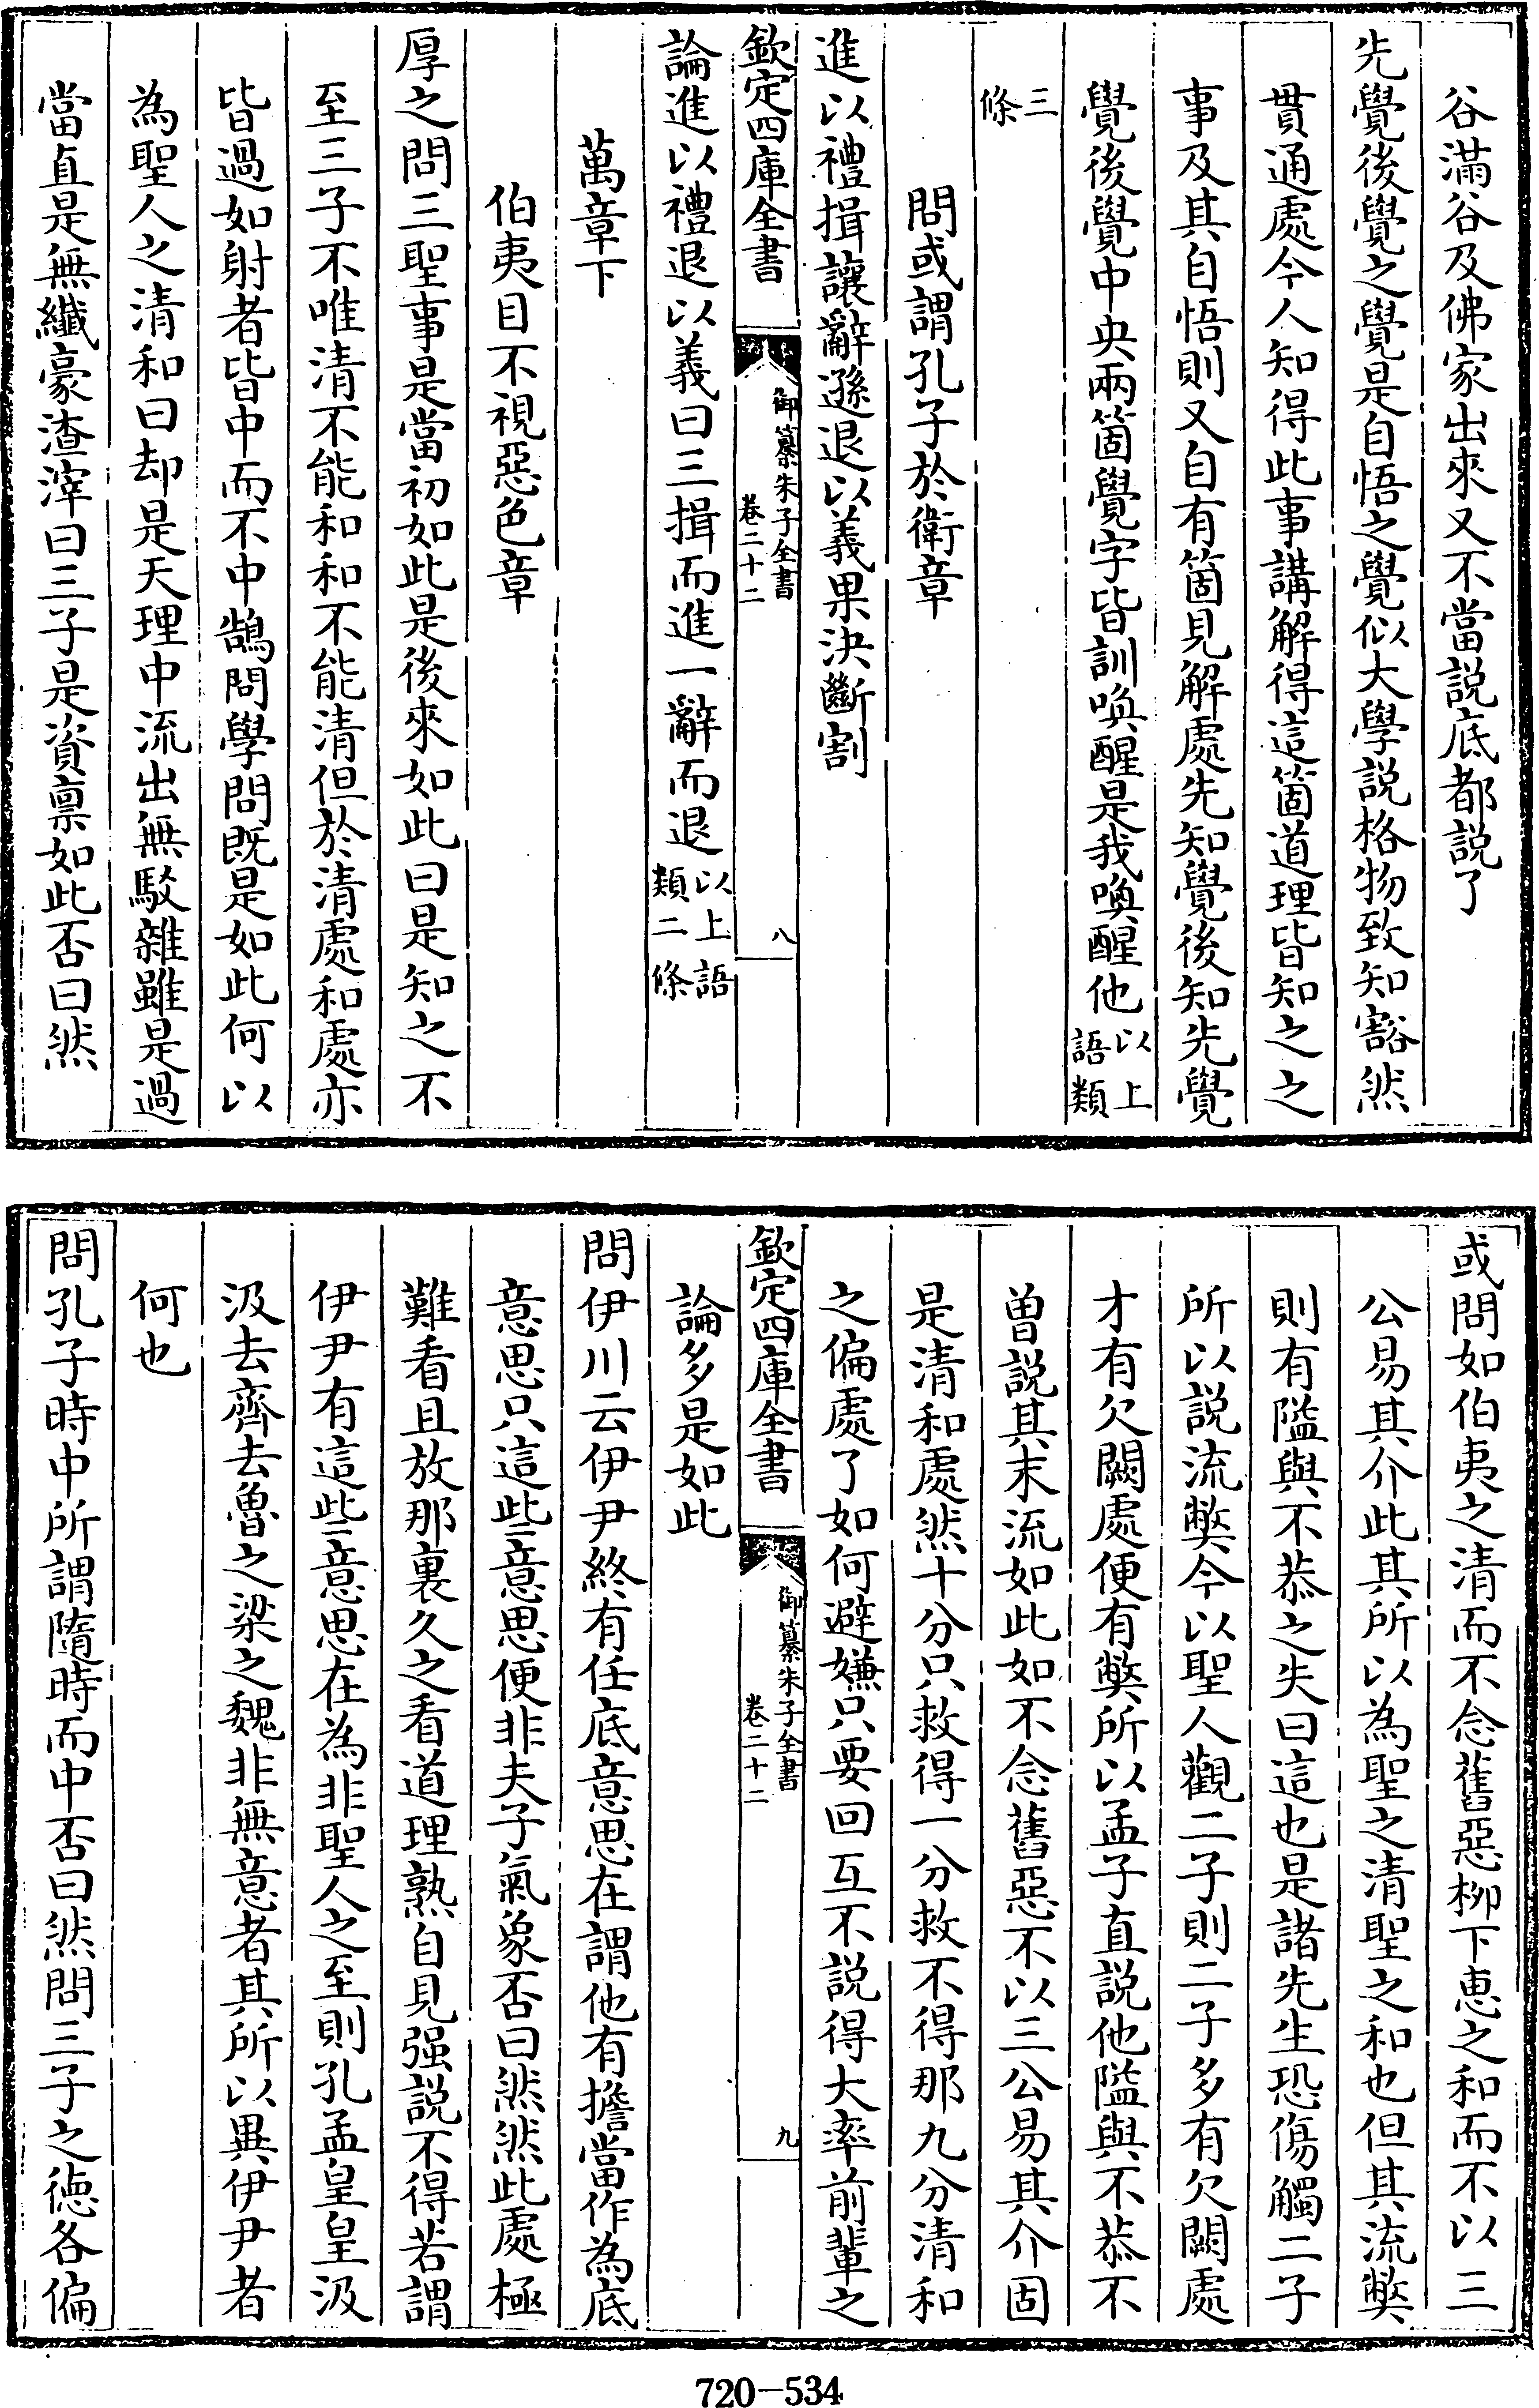 谷滿谷及佛家出來又不當説底都説了
先覺後覺之覺是自悟之覺似大學説格物致知豁然
貫通處今人知得此事講解得這箇道理皆知之之
事及其自悟則又自有箇見解處先知覺後知先覺
覺後覺中央兩箇覺字皆訓喚醒是我喚醒他以上
語類
三
條
問或謂孔子於衛章
進以禮揖讓辭遜退以義果決斷割
欽定四庫全書
御纂朱子全書
卷二十二
八
論進以禮退以義曰三揖而進一辭而退以上語
類二條
萬章下
伯夷目不視惡色章
厚之問三聖事是當初如此是後來如此曰是知之不
至三子不唯清不能和和不能清但於清處和處亦
皆過如射者皆中而不中鵠問學問既是如此何以
為聖人之清和曰却是天理中流出無駁雜雖是過
當直是無纖豪渣滓曰三子是資稟如此否曰然
或問如伯夷之清而不念舊惡桞下恵之和而不以三
公易其介此其所以為聖之清聖之和也但其流弊
則有隘與不恭之失曰這也是諸先生恐傷觸二子
所以説流弊今以聖人觀二子則二子多有欠闕處
才有欠闕處便有弊所以孟子直説他隘與不恭不
曽説其末流如此如不念舊惡不以三公易其介固
是清和處然十分只救得一分救不得那九分清和
之偏處了如何避嫌只要回互不説得大率前軰之
欽定四庫全書
御纂朱子全書
卷二十二
九
論多是如此
問伊川云伊尹終有任底意思在謂他有擔當作為底
意思只這些意思便非夫子氣象否曰然然此處極
難看且放那裏久之看道理熟自見强説不得若謂
伊尹有這些意思在為非聖人之至則孔孟皇皇汲
汲去齊去魯之梁之魏非無意者其所以異伊尹者
何也
問孔子時中所謂隨時而中否曰然問三子之徳各偏
720-534